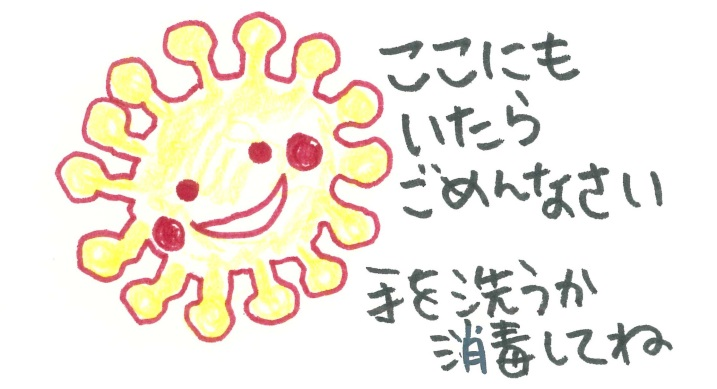 ここにも
いたら
ごめんなさい
手を洗うか
消毒してね